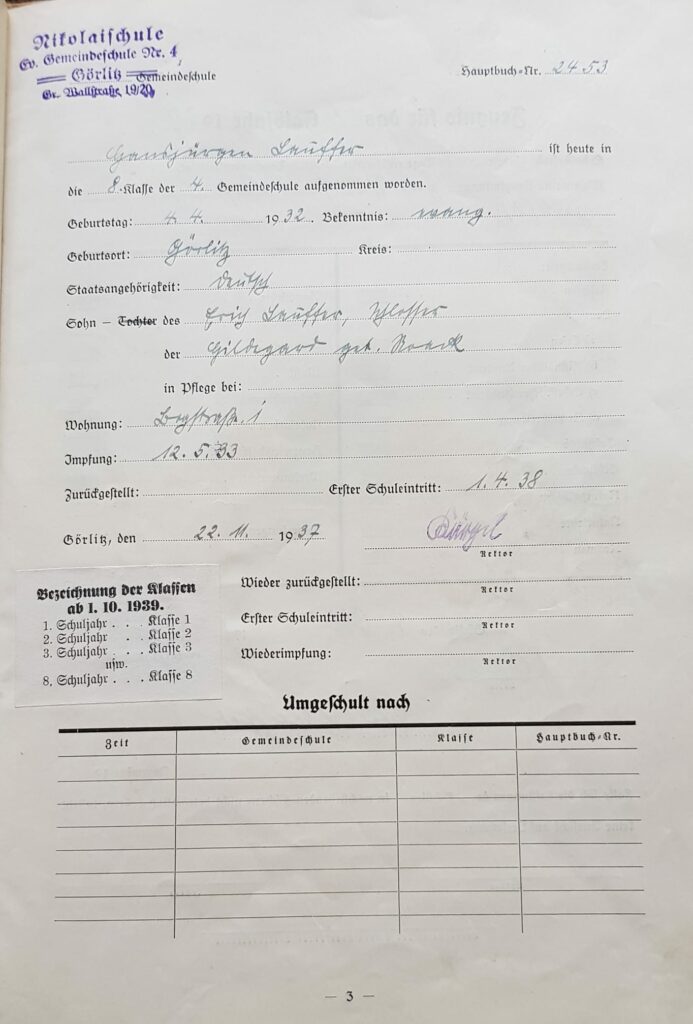 Nikolaischule
Ev. Gemeindeschule Nr. 4,
Görlitz Gemeindeschule
Gr. Wallstraße 19/20
Hauptbuch=Nr. 2453
Hansjürgen Lauffer ist heute in
die 8.Klasse der 4. Gemeindeschule aufgenommen worden.
Geburtstag: 4. 4. 1932. Bekenntnis: evang.
Geburtsort: Görlitz Kreis:
Staatsangehörigkeit: deutsch
Sohn – Tochter des Erich Lauffer, Schlosser
der Hildegard geb. Noack
in Pflege bei:
Wohnung: Bergstraße 1
Impfung: 12. 5. 33
Zurückgestellt: Erster Schuleintritt: 1. 4. 38
Görlitz, den 22. 11. 1937
Rektor
Bezeichnung der Klassen
ab 1. 10. 1939.
1. Schuljahr . . . Klasse 1
2. Schuljahr . . . Klasse 2
3. Schuljahr . . . Klasse 3
usw.
8. Schuljahr . . . Klasse 8
Wieder zurückgestellt:
Rektor
Erster Schuleintritt:
Rektor
Wiederimpfung:
Rektor
Umgeschult nach
Zeit Gemeindeschule Klasse Hauptbuch=Nr.
— 3 —